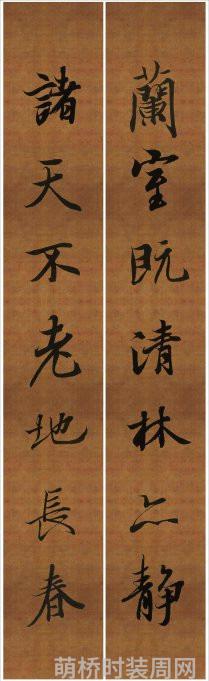 蘭室既清林亦静
諸天不老地長春
萌桥时装周网